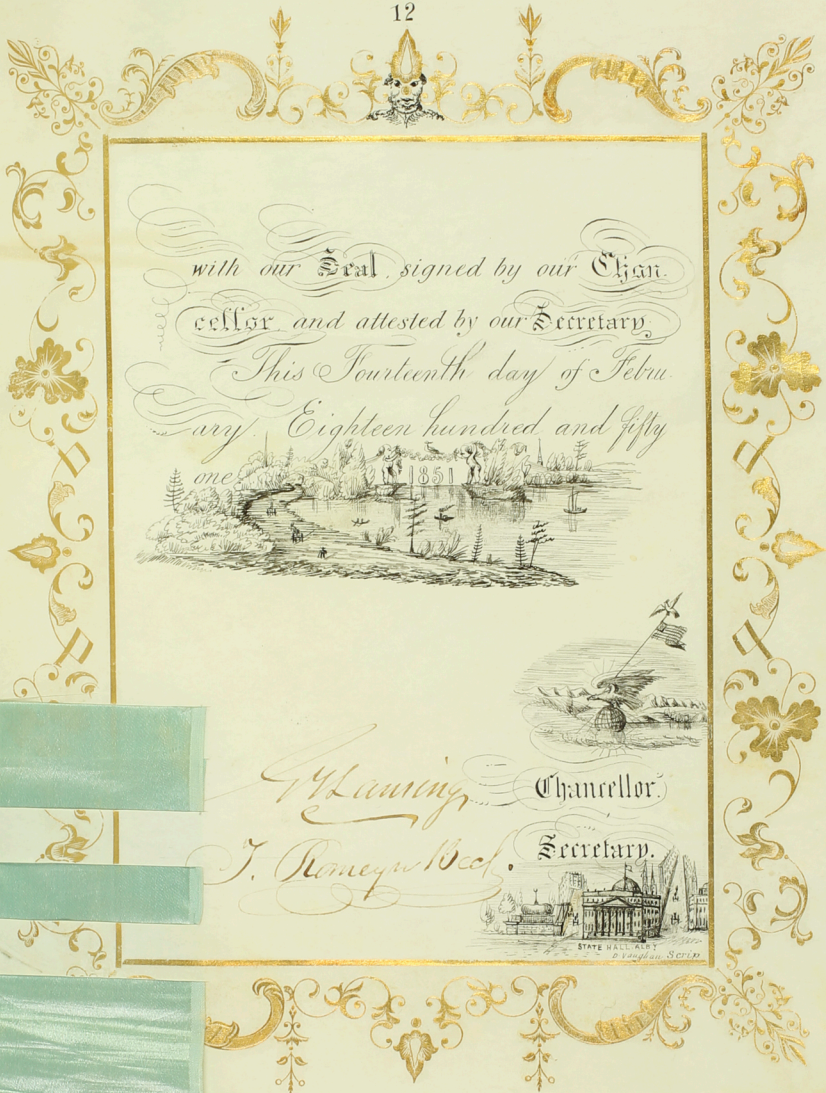 12
with our Seal, signed by our Chan.
cellor, and attested by our Secretary,
This Fourteenth day of Febru.
ary, Eighteen hundred and fifty
one
1851
G Y Lansing Chancellor.
T. Romeyn Beck. Secretary.
STATE HALL ALBY
D Vaughan. Scrip